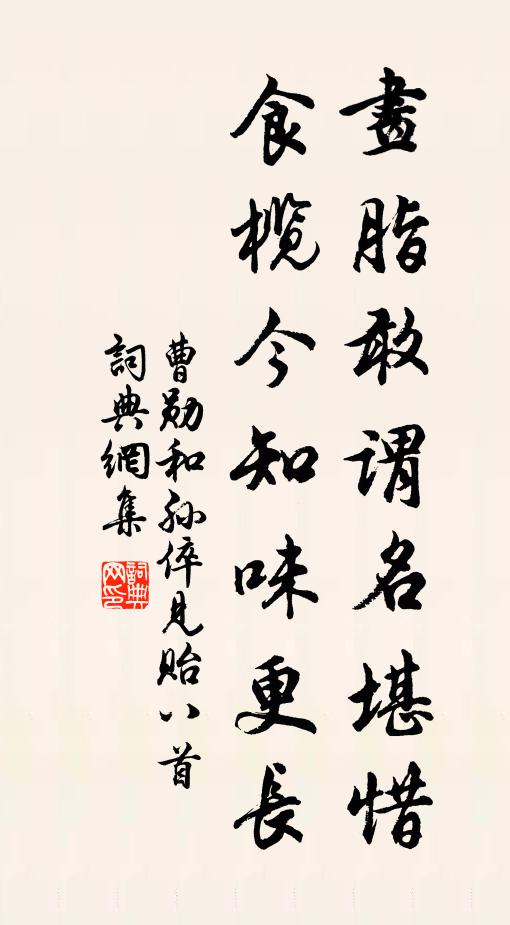 畫脂敢謂名堪惜
食欖今知味更長
曹勛和孫倅見貽八首
詞典網集
詞典网印